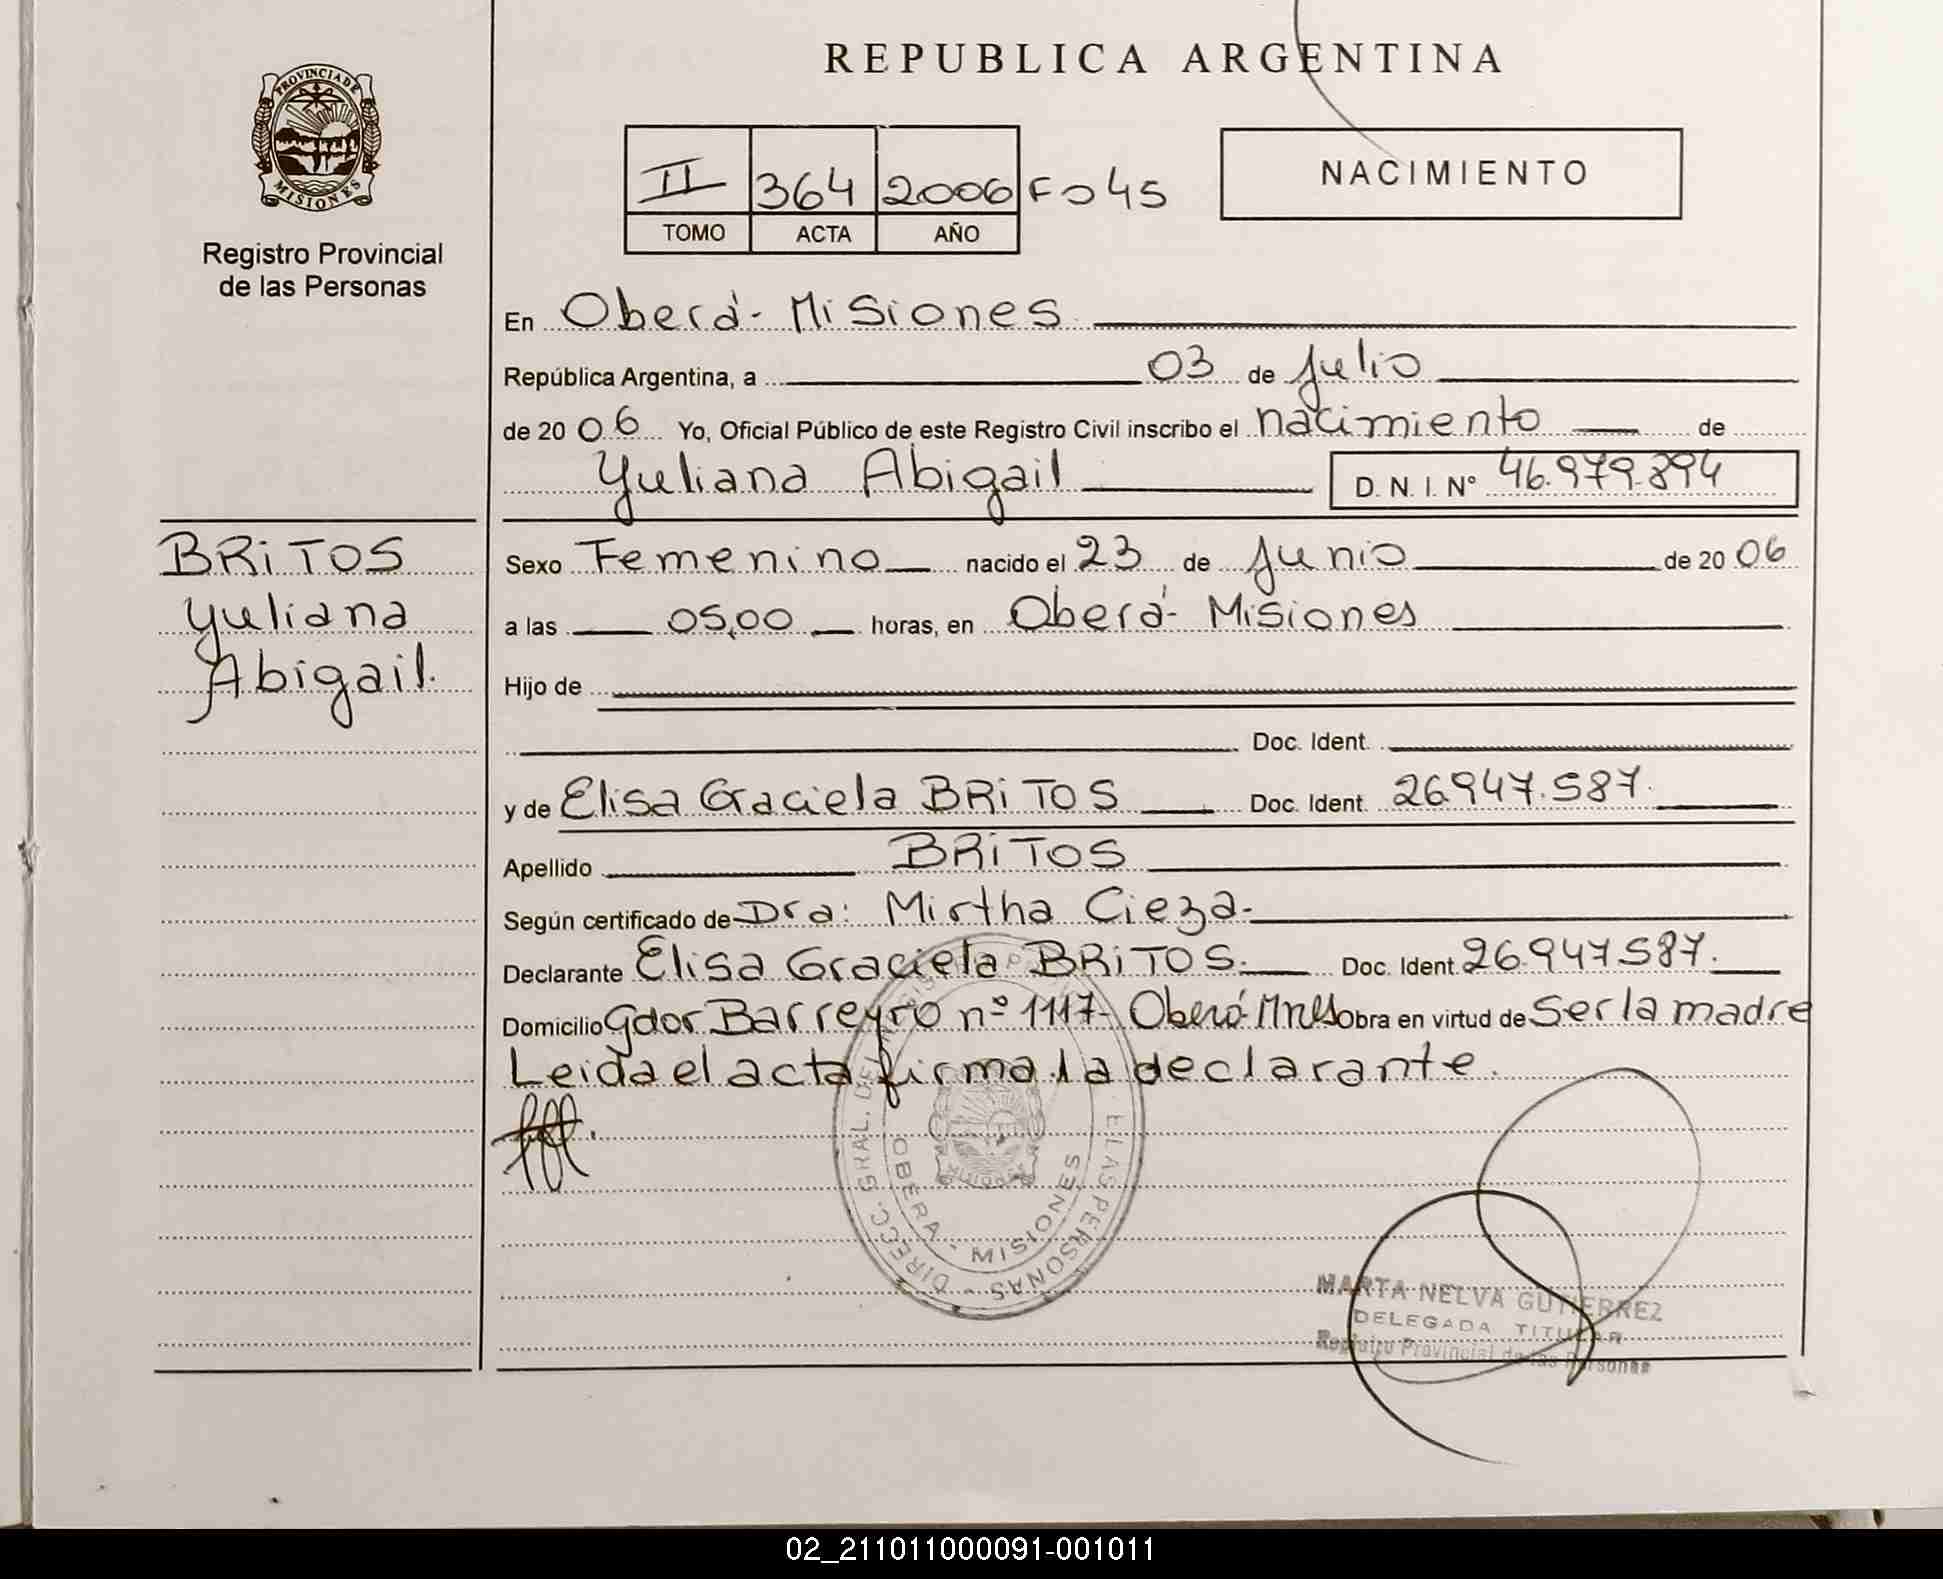 REPUBLICA ARGENTINA
PROVINCIA DE
MISIONES
Registro Provincial
de las Personas
II 364 2006 Fo 45
TOMO ACTA AÑO
NACIMIENTO
En Oberá - Misiones
República Argentina, a 03 de Julio
de 2006 Yo, Oficial Público de este Registro Civil inscribo el nacimiento de
Yuliana Abigail D. N. I. N° 46.979.894
BRITOS
Yuliana
Abigail.
Sexo Femenino nacido el 23 de Junio de 2006
a las 05,00 horas, en Oberá - Misiones
Hijo de
Doc. Ident.
y de Elisa Graciela BRITOS Doc. Ident. 26.947.587.
Apellido BRITOS
Según certificado de Dra: Mirtha Cieza-
Declarante Elisa Graciela BRITOS. Doc. Ident. 26.947.587.
Domicilio Gdor Barreyro nº 1117- Oberá-Mnes Obra en virtud de Ser la madre
Leida el acta firma la declarante.
DIRECC. GRAL. DEL PERSONAS -
OBERA - MISIONES
MARTA NELVA GUTIERREZ
DELEGADA TITULAR
Registro Provincial de las Personas
02_211011000091-001011